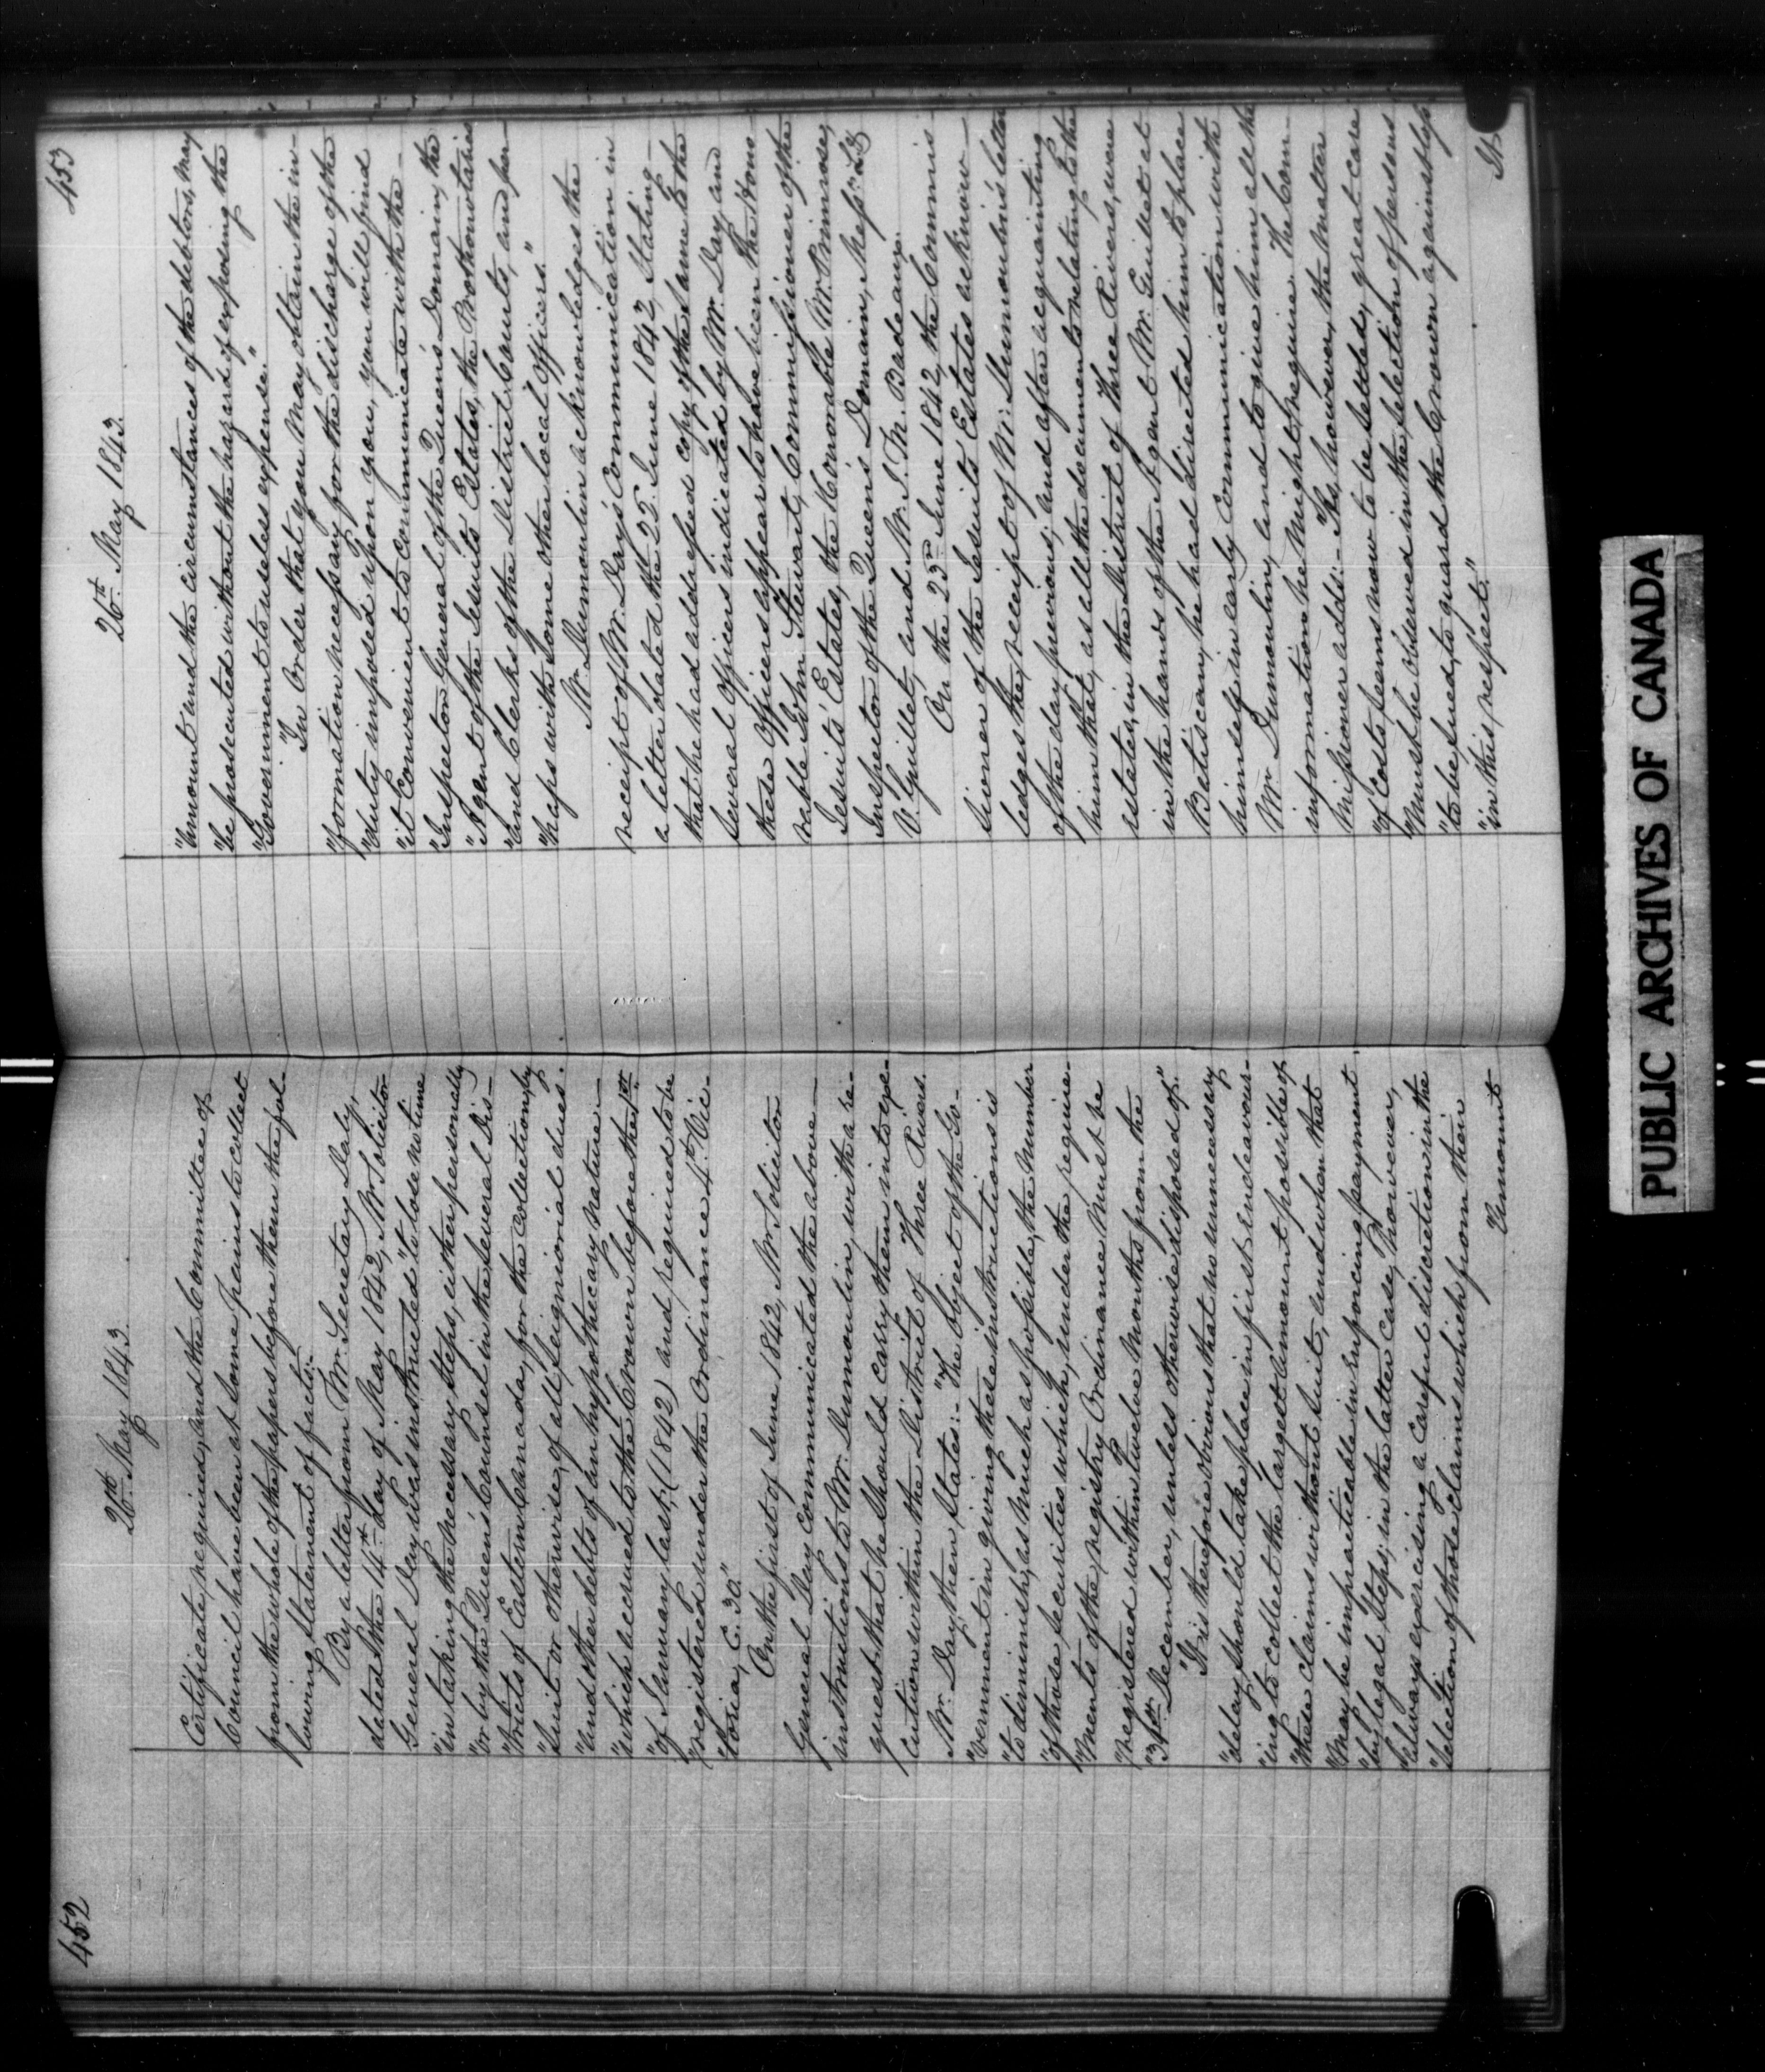 452
26th May 1843.
Certificate, required, and the Committee of
Council have been at some pains to collect
from the whole of the papers before them the fol-
lowing statement of facts:-
By a letter from Mr. Secretary Daly,
dated the 14th day of May 1842, Mr Solicitor
General Day was instructed "to lose no time
"in taking the necessary steps, either personally
"or by the Queen's Counsel in the several Dis-
"tricts of Eastern Canada, for the collection, by
"suit or otherwise, of all Seignorial dues.
"and other debts of an hypothecary nature -
"which accrued to the Crown before the 1st
"of January last, (1842) and required to be
"registered under the Ordinance 4th Vic-
"toria, C. 30."
On the first of June 1842, Mr Solicitor
General Day communicated the above -
instructions to Mr. Dumoulin, with a re-
quest that he should carry them into exe-
cution within the District of Three Rivers.
Mr. Day then states:- "The object of the Go-
"vernment in giving these instructions is
"to diminish, as much as possible, the number
"of those securities which, under the require-
"ments of the registry Ordinance must be
"registered within twelve months from the
"31st December, unless otherwise disposed of."
"It is therefore obvious that no unnecessary
"delay should take place in first endeavour-
"ing to collect the largest amount possible of
"these claims without suit, and when that
"may be impracticable in enforcing payment
"by legal steps; in the latter case, however,
"always exercising a careful discretion in the
"selection of those claims which from their
Amount
453
26th May 1843.
"amount and the circumstances of the debtors, may
"be prosecuted without the hazard of exposing the
"Government to useless expense."
"In order that you may obtain the in-
"formation necessary for the discharge of the
"duty imposed upon you, you will find
"it convenient to communicate with the -
"Inspector General of the Queen's Domain, the
"Agent of the Jesuits' Estates, the Prothonotaries
"and Clerks of the District Courts, and per-
"haps with some other local officers."
Mr. Dumoulin acknowledges the
receipt of Mr. Day's communication in
a letter dated the 22d June 1842, stating -
that he had addressed copy of the same to the
several officers indicated by Mr. Day, and
these officers appear to have been The Hono-
rable John Stewart, Commissioner of the
Jesuits' Estates, the Honorable Mr. Primrose,
Inspector of the Queen's Domain, Messrs. L. G
V. Guillet, and Mr. J. M. Badeaux.
On the 23rd June 1842, the Commis-
sioner of the Jesuits' Estates acknow-
ledges the receipt of Mr. Dumoulin's letter
of the day previous; and after acquainting
him that, as all the documents relating to the
estates, in the District of Three Rivers, were
in the hands of the Agent Mr. Guillet at
Batiscan, he had directed him to place
himself in early communication with
Mr. Dumoulin, and to give him all the
information he might require. The Com-
missioner adds:- "As, however, the matter
"of Costs seems now to be settled, great care
"must be observed in the selection of persons
"to be sued, to guard the Crown against loss
"in this respect."
It
PUBLIC ARCHIVES OF CANADA